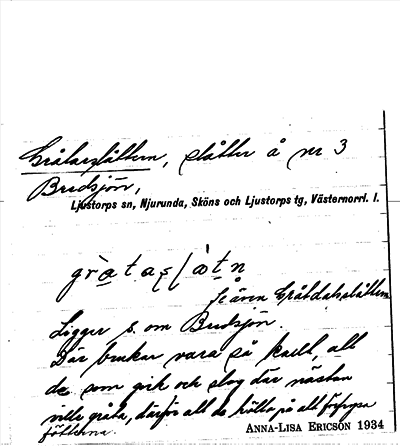 Gråtarslåttern, slåtter å nr 3
Bredsjön,
Ljustorps sn, Njurunda, Sköns och Ljustorps tg, Västernorrl. l.
Se även Gråtdalsslåttern
Ligger s. om Bredsjön.
Där brukar vara så kallt, att
de som gick och slog där nästan
ville gråta, därför att de hålla på att förfrysa
fötterna.
ANNA-LISA ERICSON 1934